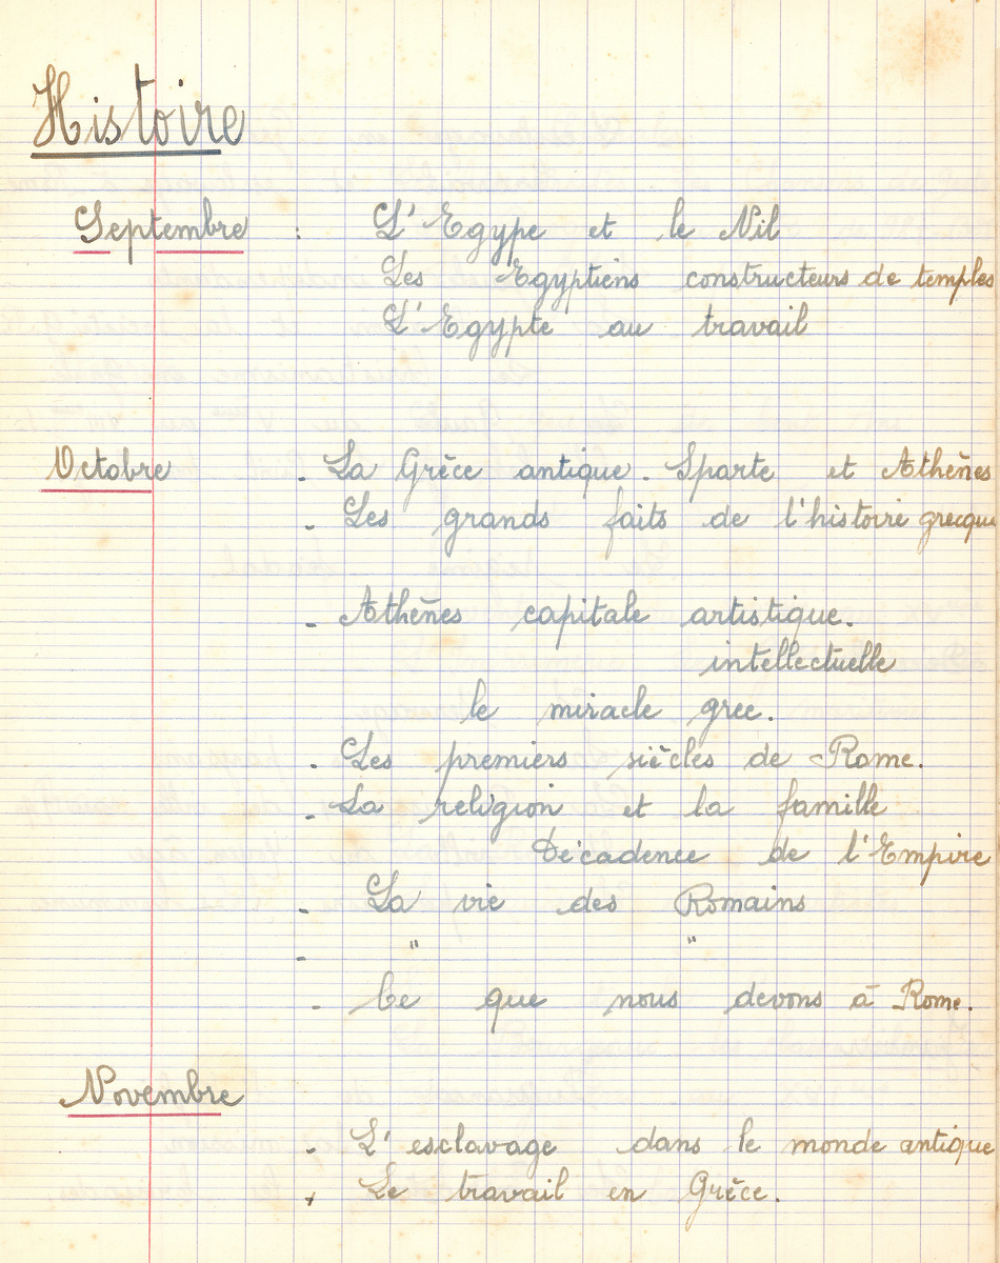 Histoire
Septembre : L'Egype et le Nil
Les Egyptiens constructeurs de temples
L'Egypte au travail
Octobre - La Grèce antique. Sparte et Athènes
- Les grands faits de l'histoire grecque
- Athènes capitale artistique.
intellectuelle
le miracle grec.
- Les premiers siècles de Rome.
- La religion et la famille
Décadence de l'Empire
- La vie des Romains
- " "
- Ce que nous devons à Rome.
Novembre
- L'esclavage dans le monde antique
- Le travail en Grèce.